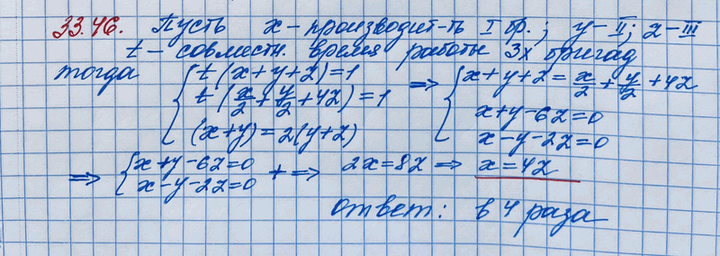 33.46. Пусть x – производит-ть I бр.; y – II; z – III
t – совместн. время работы 3х бригад
тогда { t(x+y+z)=1 ⇒ { x+y+z = x/2 + y/2 + 4z
t(x/2 + y/2 + 4z)=1
x+y-6z=0
(x+y)=2(y+z)
x-y-2z=0
⇒ { x+y-6z=0 + ⇒ 2x=8z ⇒ x=4z
x-y-2z=0
Ответ: в 4 раза